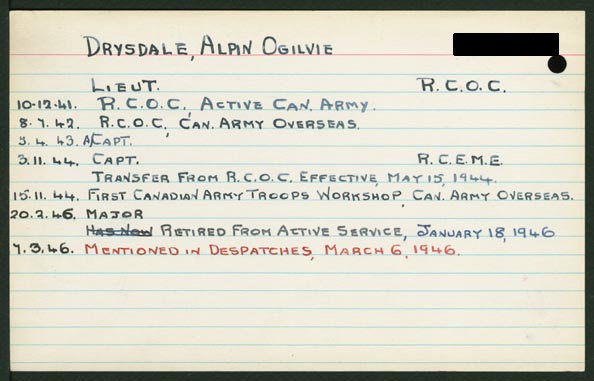 DRYSDALE, ALPIN OGILVIE
LIEUT. R.C.O.C.
10-12-41. R.C.O.C, ACTIVE CAN. ARMY.
8.7.42. R.C.O.C, CAN. ARMY OVERSEAS.
5.4.43. A/CAPT.
3.11.44. CAPT. R.C.E.M.E.
TRANSFER FROM R.C.O.C. EFFECTIVE, MAY 15, 1944.
15.11.44. FIRST CANADIAN ARMY TROOPS WORKSHOP, CAN. ARMY OVERSEAS.
20.2.46. MAJOR
HAS NOW RETIRED FROM ACTIVE SERVICE, JANUARY 18, 1946
7.3.46. MENTIONED IN DESPATCHES, MARCH 6, 1946.